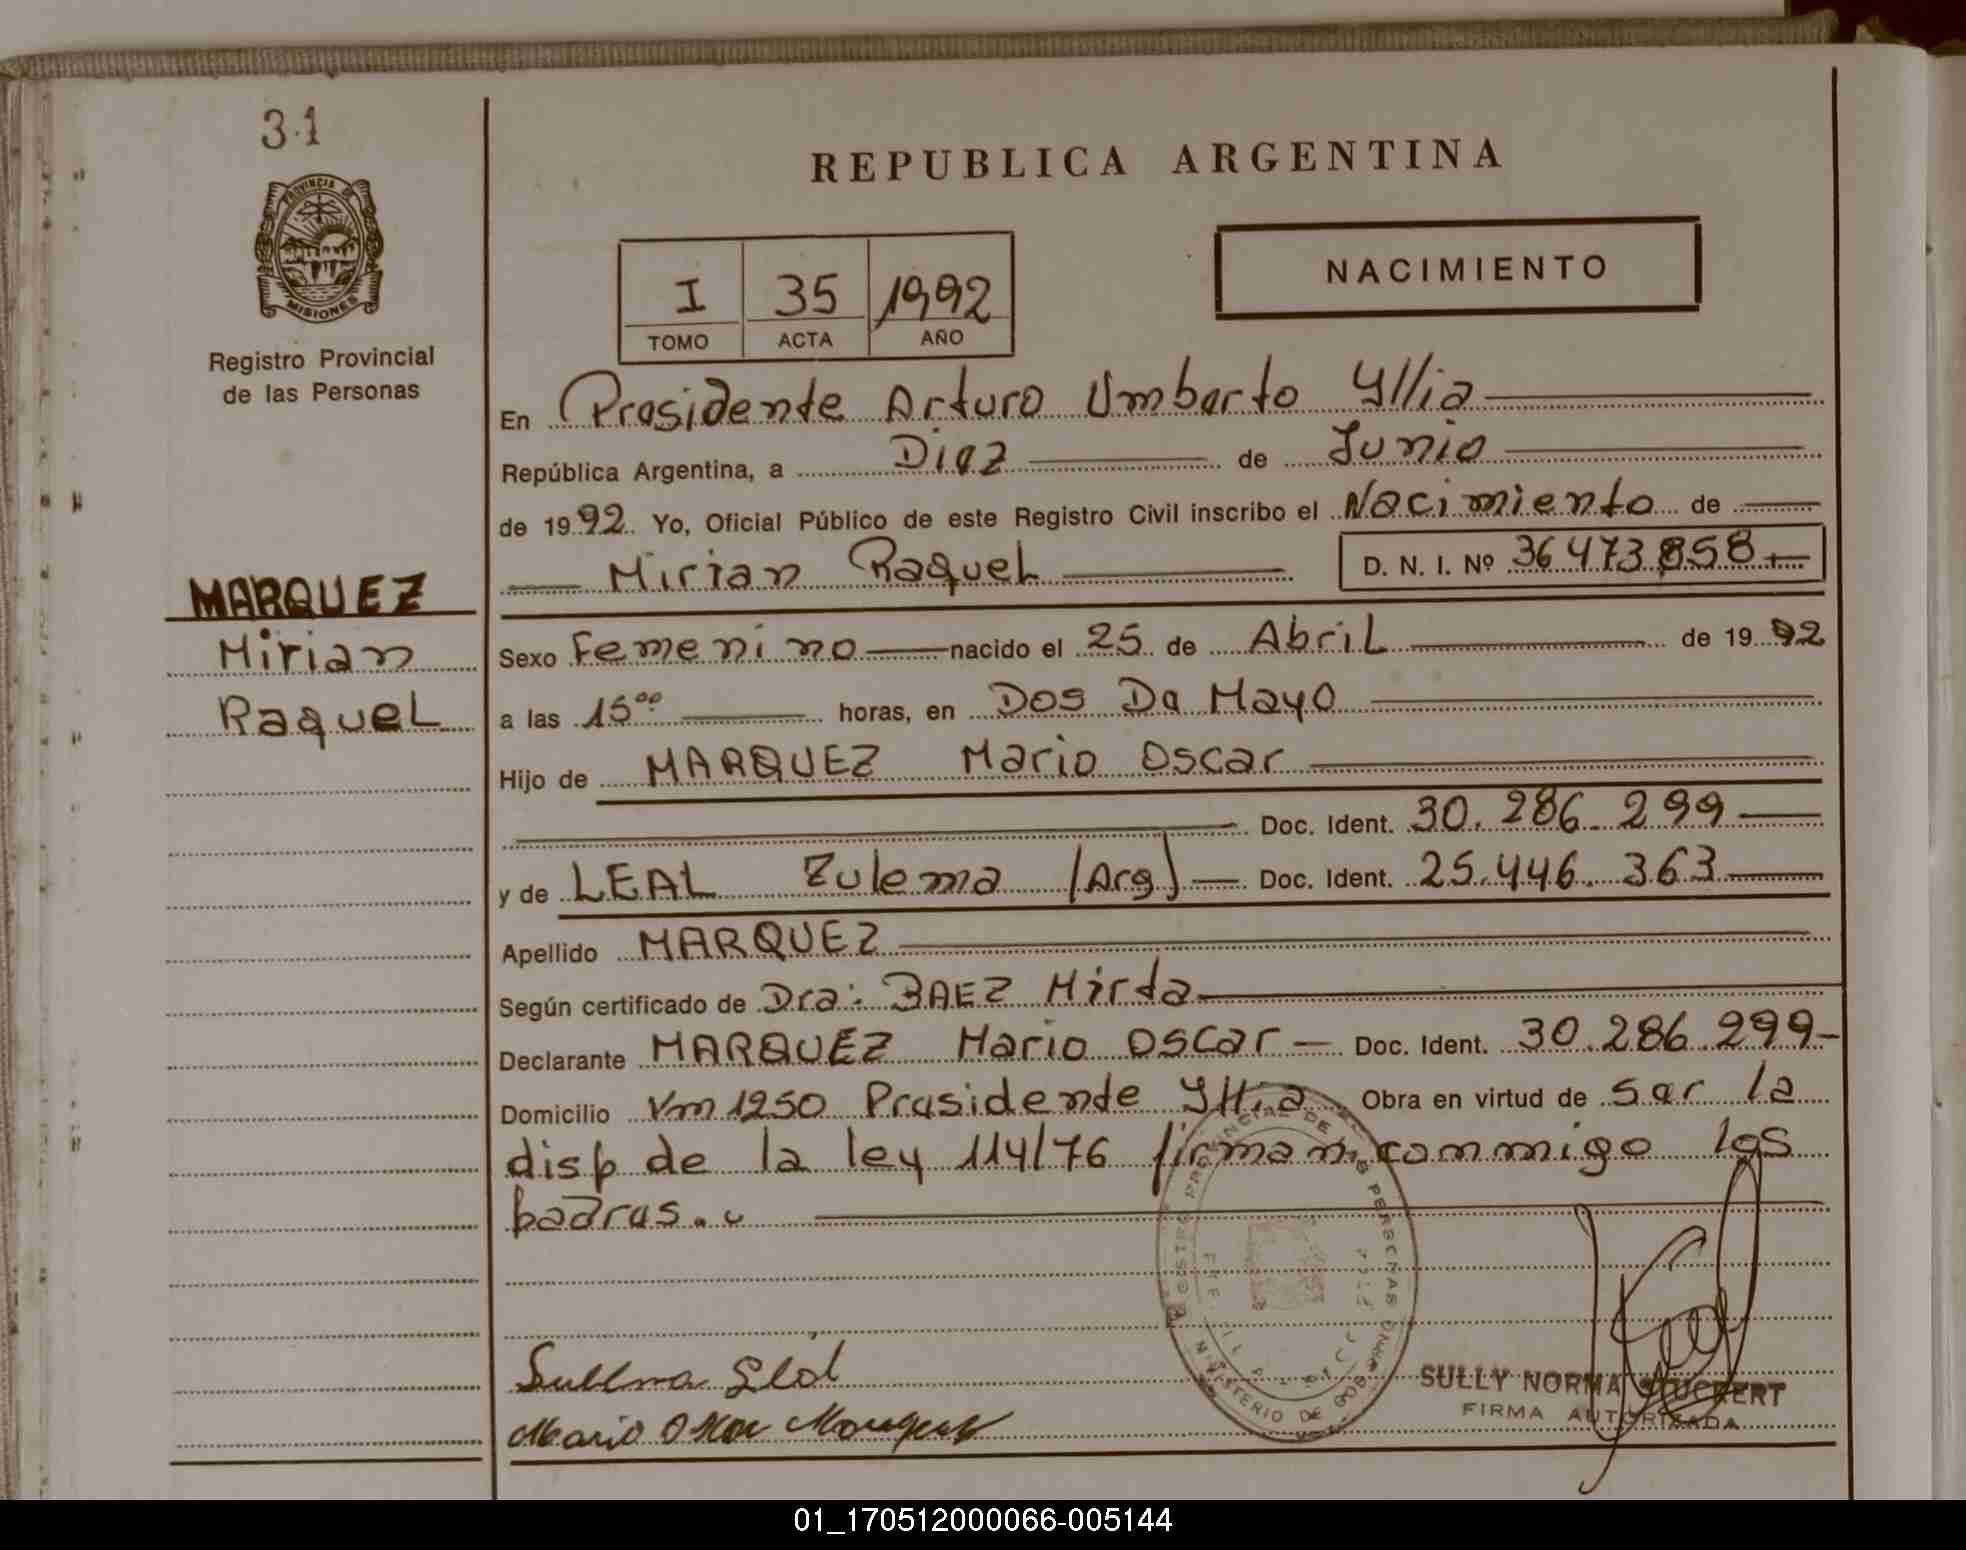 31
PROVINCIA DE
MISIONES
Registro Provincial
de las Personas
REPUBLICA ARGENTINA
I 35 1992
TOMO ACTA AÑO
NACIMIENTO
En Presidente Arturo Umberto Yllia
República Argentina, a Diez de Junio
de 1992. Yo, Oficial Público de este Registro Civil inscribo el Nacimiento de
Mirian Raquel D. N. I. Nº 36 473 858
MARQUEZ
Mirian
Raquel
Sexo Femenino nacido el 25 de Abril de 1992
a las 15⁰⁰ horas, en Dos De Mayo
Hijo de MARQUEZ Mario Oscar
Doc. Ident. 30.286.299
y de LEAL Zulema (Arg) Doc. Ident. 25.446.363
Apellido MARQUEZ
Según certificado de Dra: BAEZ Mirta
Declarante MARQUEZ Mario Oscar Doc. Ident. 30.286.299
Domicilio Km 1250 Presidente Yllia Obra en virtud de ser la
disp de la ley 114/76 firman conmigo los
padres.
REGISTRO PROVINCIAL DE LAS PERSONAS
MINISTERIO DE GOBIERNO
Mario Oscar Marquez
SULLY NORMA
FIRMA AUTORIZADA
01_170512000066-005144